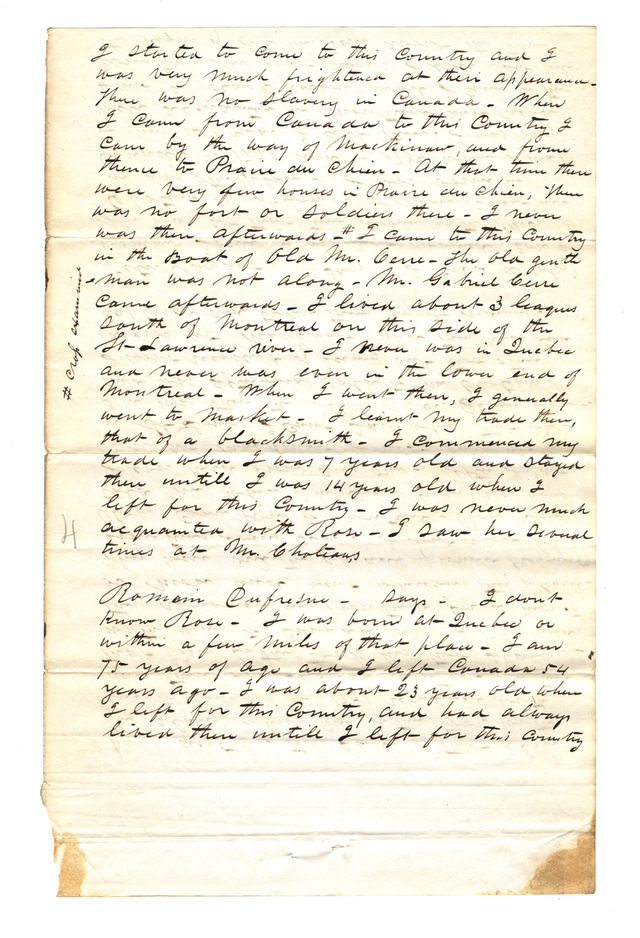 I started to come to this Country and I
was very much frightened at their appearance -
There was no slavery in Canada - When
I came from Canada to this Country I
came by the way of Mackinaw, and from
thence to Prairie du Chien - At that time there
were very few houses in Prairie du Chien, There
was no fort or soldiers there - I never
was there afterwards - # I came to this Country
in the Boat of Old Mr. Cerre - The old gentle
-man was not along - Mr. Gabriel Cerre
came afterwards - I lived about 3 leagues
south of Montreal on this side of the
St-Lawrence river - I never was in Quebec
and never was even in the lower end of
Montreal - When I went there, I generally
went to market - I learnt my trade there,
that of a blacksmith - I commenced my
trade when I was 7 years old and stayed
there untill I was 14 years old when I
left for this Country - I was never much
acquainted with Rose - I saw her several
times at Mr. Choteaus
# Cross examined
4
Romain Dufresne - says - I dont
know Rose - I was born at Quebec or
within a few miles of that place - I am
75 years of age and I left Canada 54
years ago - I was about 23 years old when
I left for this Country, and had always
lived there untill I left for this Country